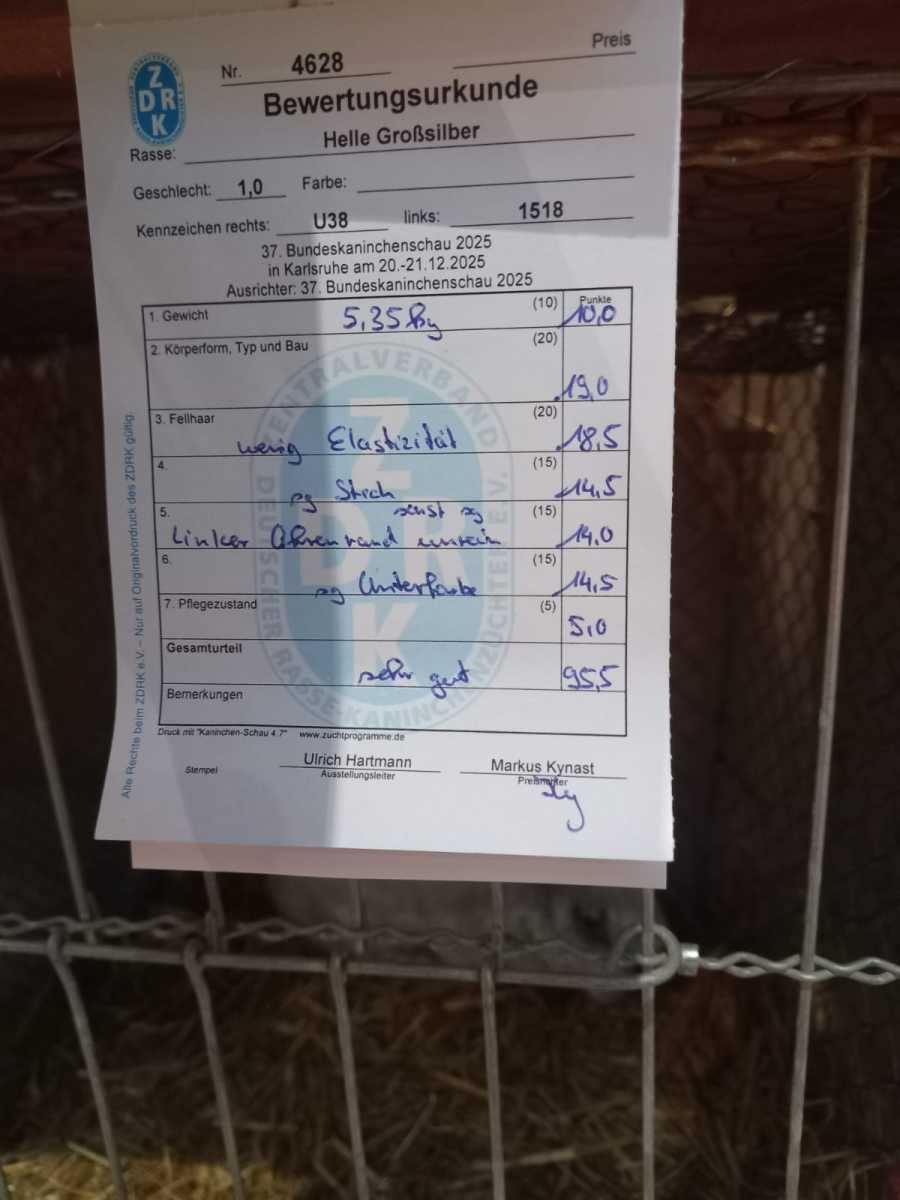 ZDRK
Nr. 4628 Preis
Bewertungsurkunde
Rasse: Helle Großsilber
Geschlecht: 1,0 Farbe:
Kennzeichen rechts: U38 links: 1518
37. Bundeskaninchenschau 2025
in Karlsruhe am 20.-21.12.2025
Ausrichter: 37. Bundeskaninchenschau 2025
Punkte
1. Gewicht 5,35 kg (10) 10,0
2. Körperform, Typ und Bau (20) 19,0
3. Fellhaar (20)
wenig Elastizität 18,5
4. (15)
sg Stich 14,5
5. sonst sg (15)
Linker Ohrenrand unrein 14,0
6. (15)
sg Unterfarbe 14,5
7. Pflegezustand (5) 5,0
Gesamturteil
sehr gut 95,5
Bemerkungen
Druck mit "Kaninchen-Schau 4.7" www.zuchtprogramme.de
Stempel
Ulrich Hartmann
Ausstellungsleiter
Markus Kynast
Preisrichter
Alle Rechte beim ZDRK e.V. – Nur auf Originalvordruck des ZDRK gültig.
ZENTRALVERBAND DEUTSCHER RASSE-KANINCHENZÜCHTER E.V.
ZDRK